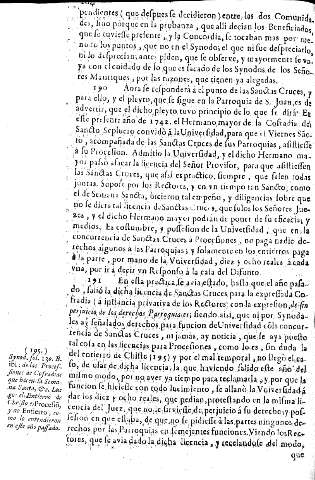 pendientes (que despues se decidieron) entre las dos Comunida-
des, hizo porque en la probanza, que alli dezian los Beneficiados
que se tuviesse presente, y la Concordia, se tocaban mas por me-
nores los puntos, que no en el Synodo; el que ni fue despreciarlo,
ni lo desprecian: antes piden, que se observe, y mayormente
con el cuidado de lo que es sacado de los Synodos de los Seño-
res Manriques, por las razones, que tienen ya alegadas.
190 Aora se responderà el punto de las Sanctas Cruces, y
para ello, y el pleyto, que se sigue en la Parroquia de S. Joan, es de
advertir, que el dicho pleyto tuvo principio de lo que se dirà: En
este presente año de 1742. el Hermano mayor de la Cofradia del
Sancto Sepulcro convidò à la Vniversidad, para que el Viernes San-
to, acompañada de las Sanctas Cruces de sus Parroquias, assistiesse
à su Procession. Admitiò la Vniversidad, y el dicho Hermano ma-
yor passò à sacar la licencia del Señor Provisor, para que assistiessen
las Sanctas Cruces, que assi es practico, siempre, que salen todas
juntas. Supose por los Rectores, y en vn tiempo tan Sancto, como
el de Semana Sancta, hizieron tal empeño, y diligencias sobre que
no se diera tal licencia de Sanctas Cruces, que solos los Señores Jue-
zes, y el dicho Hermano mayor podian de poner de su eficacia, y
medios. Es costumbre, y possession de la Vniversidad, que en la
concurrencia de Sanctas Cruces à Processiones, no paga nadie de-
rechos algunos à las Parroquias; y solamente en los entierros paga
à la parte, por mano de la Vniversidad, diez y ocho reales à cada
vna, por ir à dezir vn Responso à la casa del Difunto.
191 En esta practica, se avia estado, hasta que el año pasa-
do, saliò la dicha licencia de Sanctas Cruces para la expressada Co-
fradia (à instancia privativa de los Rectores) con la expression, de sin
perjuicio de los derechos Parroquiales; siendo assi, que ni por Synoda-
les ay señalados derechos para funcion de Vniversidad cõ la concur-
rencia de Sanctas Cruces, ni jamàs, ay noticia, que se aya puesto
tal cosa en las licencias para Processiones, como lo es, sin duda la
del entierro de Christo (195) y por el mal temporal, no llegò el ca-
so, de vsar de dicha licencia, la que haviendo salido este año del
mismo modo, por no aver ya tiempo para reclamarla, y por que la
funcion se hiziesse con todo lucimiento, se allanò la Vniversidad à
dar los diez y ocho reales, que pedian, protestando en la misma li-
cencia del Juez, que no se siruiesse de perjuicio à su derecho, y pos-
session en que estaba, de que no se pidiesse à las partes ningunos de-
rechos por las Parroquias en semejantes funciones. Viendo los Rec-
tores, que se avia dado la dicha licencia, y recelandose del modo,
que
(195.)
Synod. fol. 139. B.